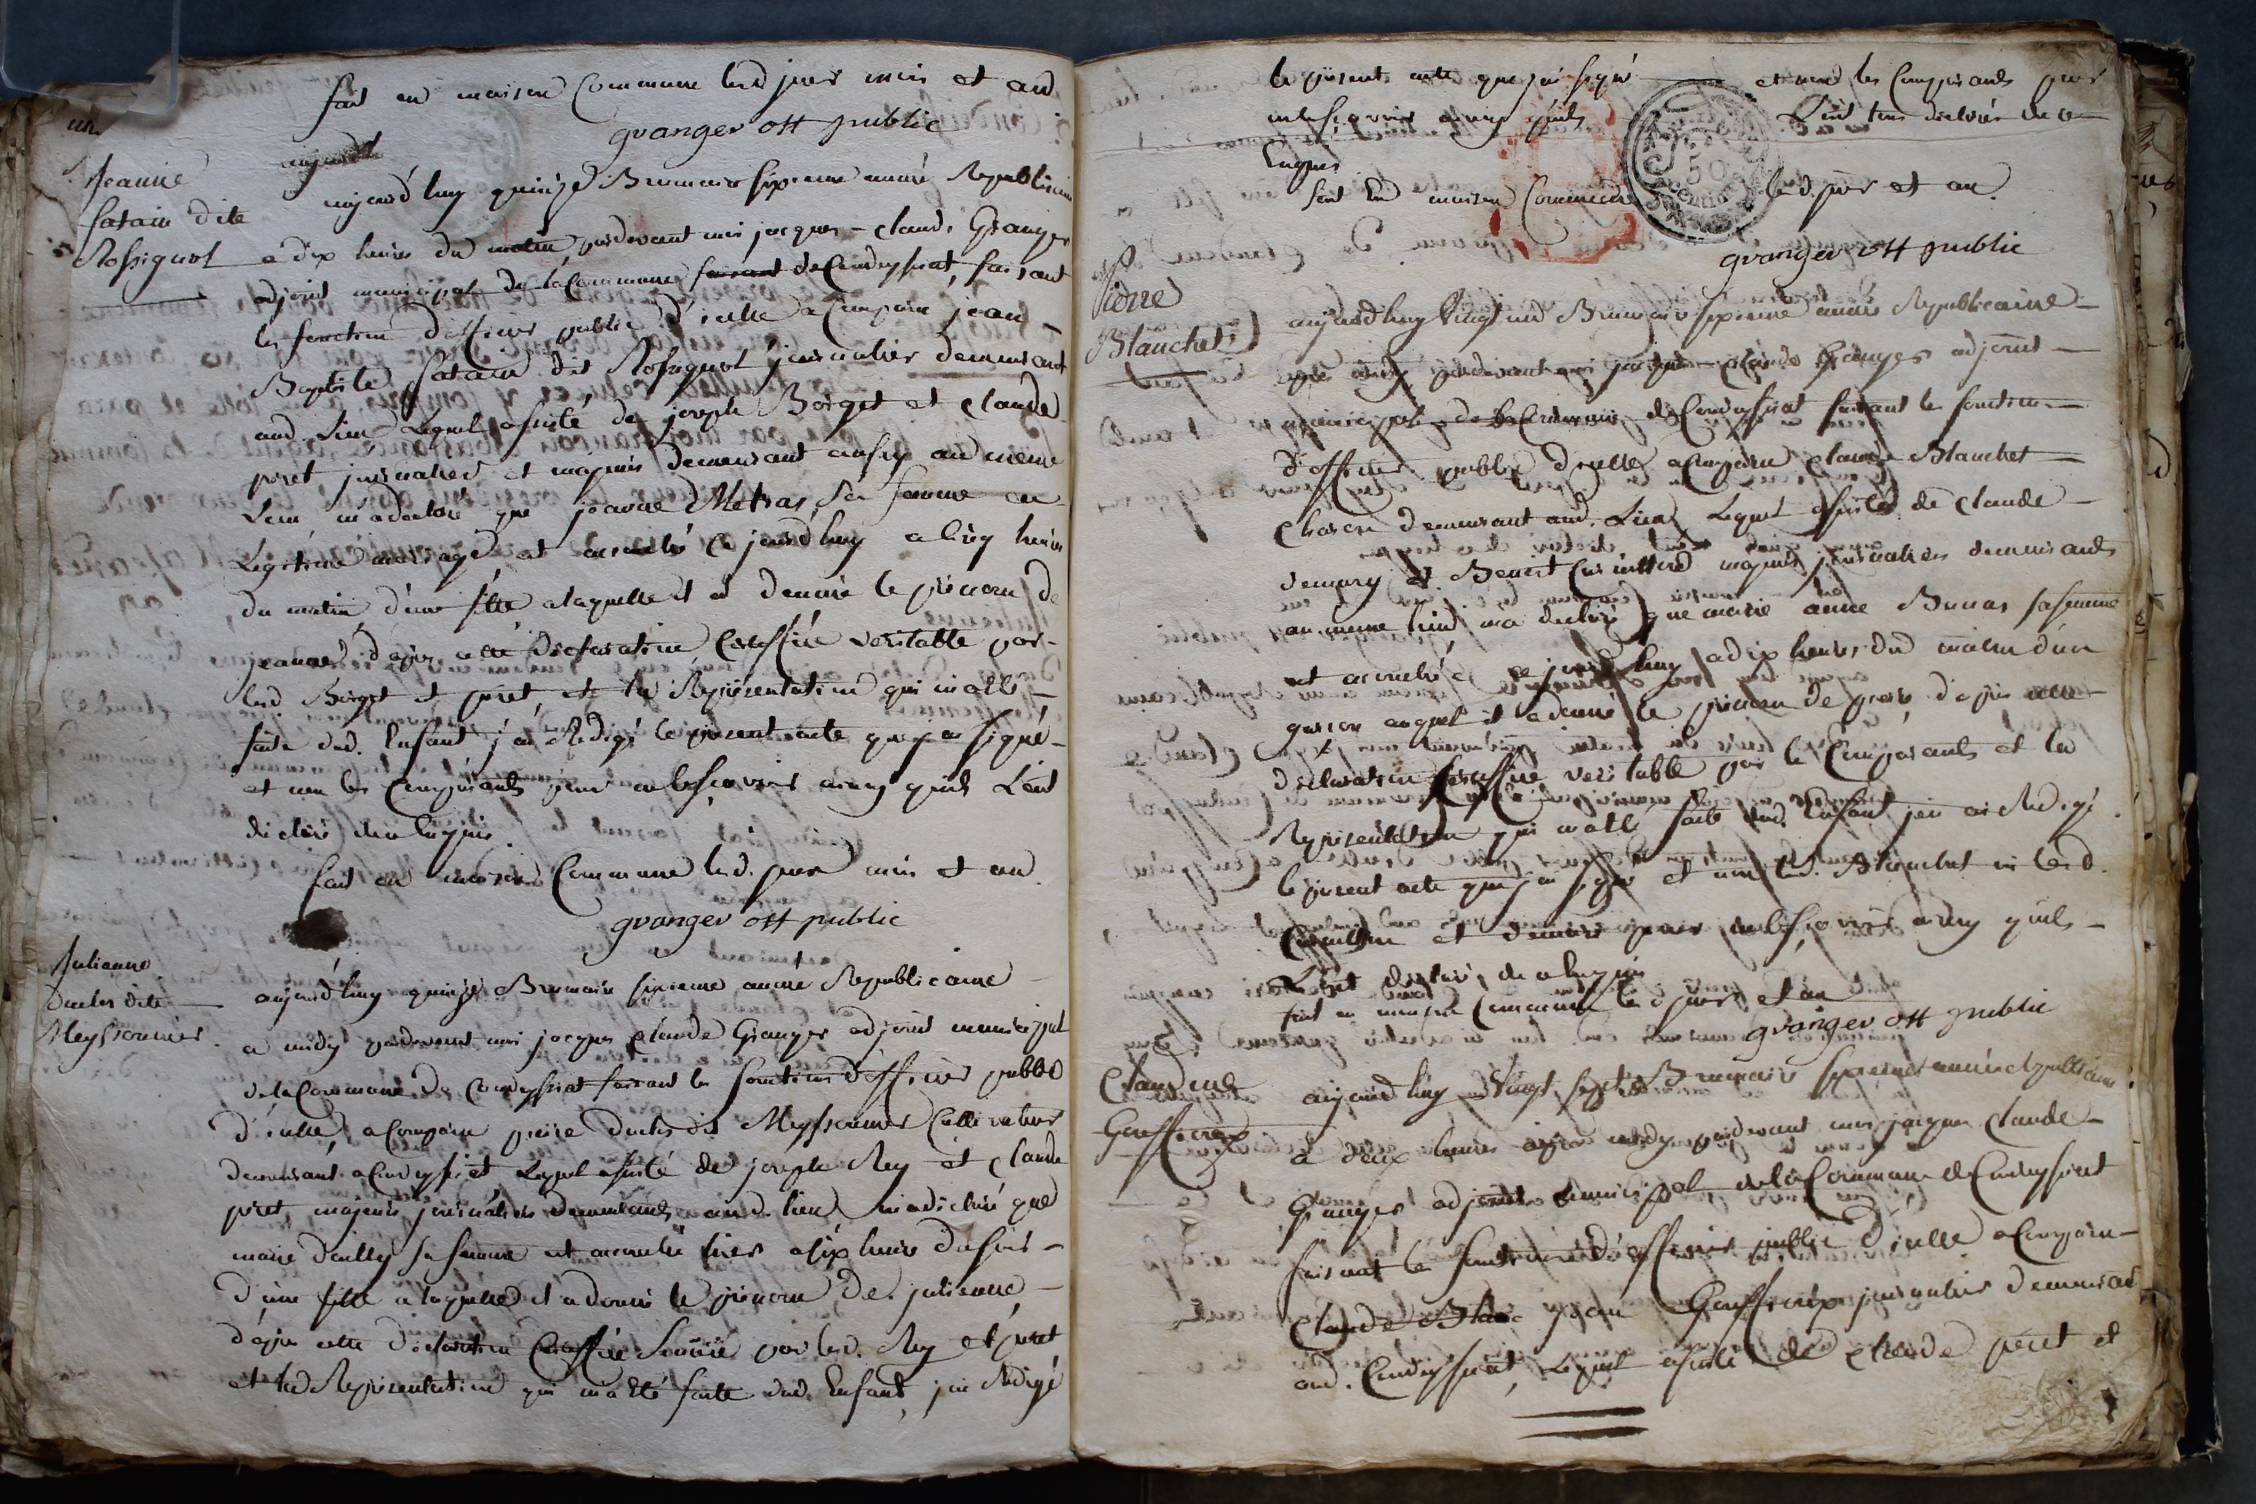 fait en maison Commune led jour mois et an
granger off public
Jeanne
fatain dite
Rossignol
aujourd'huy quinze Brumaire sixieme année Republicaine
a dix heures du matin pardevant moi jacques - claude Granger
adjoint municipal de la Commune de Condeyssiat, faisant
les fonctions d'officier public d'icelle a Comparu jean
Baptiste fatain dit Rossignol journalier demeurant
aud. Lieu Lequel assisté de joseph Borget et claude
peret journaliers et majeurs demeurant aussy au meme
Lieu, m'a declaré que jeanne Metras, sa femme en
Legitime mariage est accouché Ce jourd'huy a cinq heures
du matin, d'une fille a laquelle il a donné le prenom de
jeanne, d'apres cette declaration Certiffiée veritable par
lesd Borget et peret, et la Representation qui m'a été
faite dud. Enfant j'ai Redigé le present acte que j'ai signé
et non les Comparants pour ne le sçavoir ainsy quils L'ont
declaré de ce Enquis
fait en maison Commune led. jour mois et an
granger off public
Julienne
Duclos dite
Meyssonnier
aujourd'huy quinze Brumaire sixieme année Republicaine
a midy pardevant moi jacques claude Granger adjoint municipal
de la Commune de Condeyssiat faisant les fonctions d'officier public
d'icelle, a Comparu pierre Duclos dit Meyssonnier Cultivateur
demeurant a Condeyssiat Lequel assisté de joseph Rey et claude
peret majeurs journaliers demeurants aud. lieu m'a declaré que
marie sa femme est accouché hier a six heures du soir
d'une fille a laquelle il a donné le prenom de julienne
d'apres cette declaration Certiffiée par lesd. Rey et peret
et la Representation qui m'a été faite dud. Enfant, j'ai Redigé
le present acte que j'ai signé et non les Comparants pour
ne le sçavoir ainsy quils L'ont tous declaré de ce
Enquis
fait en maison Commune led. jour et an
granger off public
Pierre
Blanchet
aujourd'huy Vingt un Brumaire sixieme année Republicaine
pardevant moi jacques claude Granger adjoint
municipal de la Commune de Condeyssiat faisant les fonctions
d'officier public d'icelle a Comparu claude Blanchet
demeurant aud. Lieu Lequel assisté de claude
et Benoit majeurs journaliers demeurants
au meme lieu, m'a declaré que marie anne sa femme
est accouché ce jourd'huy a dix heures du matin d'un
garcon auquel il a donné le prenom de pierre d'apres cette
declaration Certiffiée veritable par les Comparants et la
Representation qui m'a été faite dud. Enfant j'en ai Redigé
le present acte que j'ai signé et non led. Blanchet ni lesd.
et pour ne le sçavoir ainsy quils
L'ont declaré, de ce Enquis
fait en maison Commune led jour et an
granger off public
aujourd'huy Vingt sept Brumaire sixieme année Republicaine
a deux heures apres midy pardevant moi jacques claude
Granger adjoint municipal de la Commune de Condeyssiat
faisant les fonctions d'officier public d'icelle a Comparu
jean journalier demeurant
aud. Condeyssiat, Lequel assisté de claude peret et